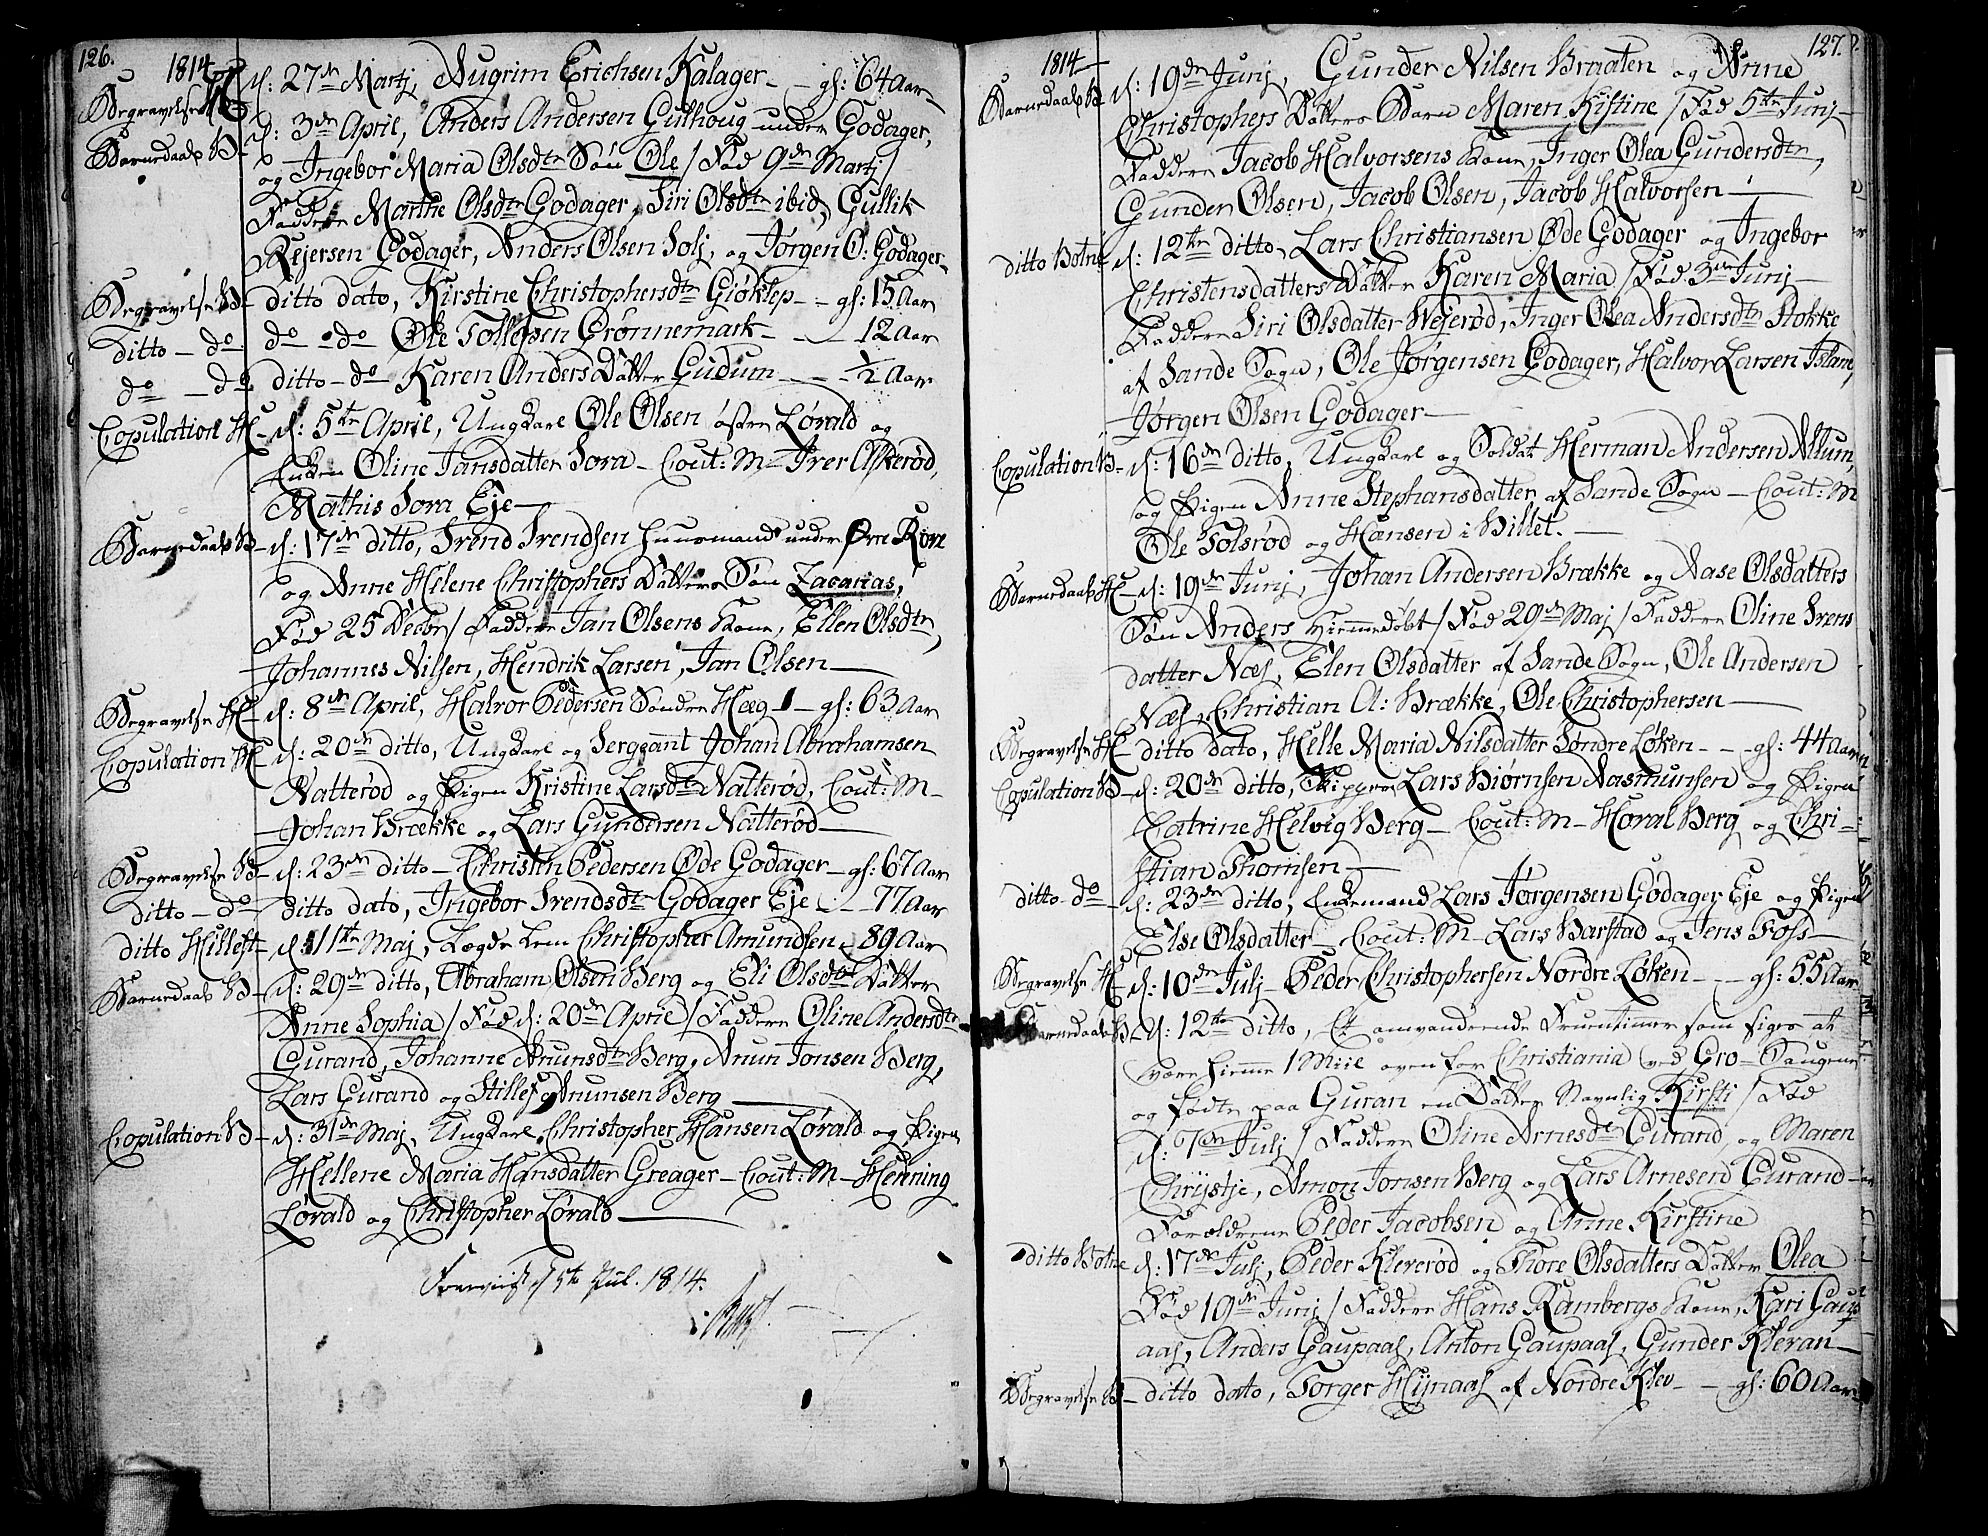 126.
1814
Begravelse H
d: 27de Martj, Augrim Erichsen Kalager - - gl: 64 Aar
Barnedaab B
d: 3de April, Anders Andersen Gulhoug under Godager,
og Ingebor Maria Olsdtr Søn Ole / Fød 9de Martj /
Faddere Marthe Olsdtr Godager, Siri Olsdtr ibid, Gullik
Rejersen Godager, Anders Olsen Solj, og Jørgen O: Godager
Begravelse B - ditto dato, Kirstine Christophersdtr Giøklep - - gl: 15 Aar
ditto - do do do Ole Tollefsen Grønnemark - - - 12 Aar
do - do ditto - do Karen Anders Datter Gudum - - - 1/2 Aar
Copulation H - d: 5te April, Ungkarl Ole Olsen østre Lørald og
Enken Oline Jansdatter Sora - Cout: M - Iver Askerød,
Mathis Sora Eje -
Barnedaab B - d: 17de ditto, Svend Svendsen Huusmand under Øvre Rove
og Anne Helene Christophers Datters Søn Zacarias,
Fød 25 Decbr / Faddere Jan Olsens Kone, Ellen Olsdtr,
Johannes Nilsen, Hendrik Larsen, Jan Olsen -
Begravelse H - d: 8de April, Halvor Pedersen Søndre Hæg - gl: 63 Aar
Copulation H - d: 20de ditto, Ungkarl og Sergeant Johan Abrahamsen
Natterød og Pigen Kristine Larsdtr Natterød, Cout: M -
Johan Brække og Lars Gundersen Natterød -
Begravelse B - d: 23de ditto - Christen Pedersen Øde Godager - gl: 67 Aar
ditto - do - ditto dato, Ingebor Svendsdtr Godager Eje - - 77 Aar
ditto Hillest - d: 11te Maj, Lægdslem Christopher Amundsen - 89 Aar
Barnedaab B - d: 29de ditto, Abraham Olsen Berg og Eli Olsdtr Datter
Anne Sophia / Fød d: 20de April / Faddere Oline Andersdtr
Gurand, Johanne Anunsdtr Berg, Anun Jonsen Berg,
Lars Gurand og Stillef Anunsen Berg -
Copulation B - d: 31de Maj, Ungkarl Christopher Hansen Lørald og Pigen
Hellene Maria Hansdatter Greager - Cout: M - Henning
Lørald og Christopher Lørald -
d 5te Jul. 1814.
127.
1814
Barnedaab B - d: 19de Junj, Gunder Nilsen Braaten og Anne
Christophers Datters Barn Maren Kistine / Fød 5te Junj -
Faddere Jacob Halvorsens Kone, Inger Olea Gundersdtr,
Gunder Olsen, Jacob Olsen, Jacob Halvorsen -
ditto Botne d: 12te ditto, Lars Christiansen Øde Godager og Ingebor
Christensdatters Datter Karen Maria / Fød 3de Junj -
Faddere Siri Olsdatter Wejerød, Inger Olea Andersdtr Stokke
af Sande Sogn, Ole Jørgensen Godager, Halvor Larsen Island,
Jørgen Olsen Godager -
Copulation B - d: 16de ditto, Ungkarl og Soldat Herman Andersen Allum,
og Pigen Anne Stephansdatter af Sande Sogn - Cout: M
Ole Tolsrød og Hansen i Billet. -
Barnedaab H - d: 19de Junj, Johan Andersen Brække og Aase Olsdatters
Søn Anders Hiemmedøbt / Fød 29de Maj / Faddere Oline Svens
datter Næs, Elen Olsdatter af Sande Sogn, Ole Andersen
Næs, Christian A: Brække, Ole Christophersen -
Begravelse H - ditto dato, Helle Maria Nilsdatter Søndre Løken - - - gl: 44 Aar
Copulation B - d: 20de ditto, Skipper Lars Biørnsen Aasmunsen og Pigen
Catrine Helvig Berg - Cout: M - Horal Berg og Chri-
stian Thomsen -
ditto - do - d: 23de ditto, Enkemand Lars Jørgensen Godager Eje og Pigen
Else Olsdatter - Cout: M - Lars Barstad og Jens Foss -
Begravelse H - d: 10de Julj - Peder Christophersen Nordre Løken - - - gl: 55 Aar
Barnedaab B - d: 12te ditto, Et omvandrende Fruentimer som siges at
være hiemme 1 Miil oven for Christiania ved Gro-Saugene
og fødte paa Guran en Datter Navnlig Kirsti / Fød
d: 7de Julj / Faddere Oline Arnesdtr Gurand, og Maren
Chrystje, Amon Jonsen Berg og Lars Arnesen Gurand -
Forældrene Peder Jacobsen og Anne Kirstine
ditto Botne d: 17de Julj, Peder Kleverød og Thore Olsdatters Datter Olea
Fød 19de Junj / Faddere Hans Rambergs Kone, Kari Gaup
aas, Anders Gaupaas, Anton Gaupaas, Gunder Kleran -
Begravelse B - ditto dato, Torger Hynaas af Nordre Klev - - gl: 60 Aar